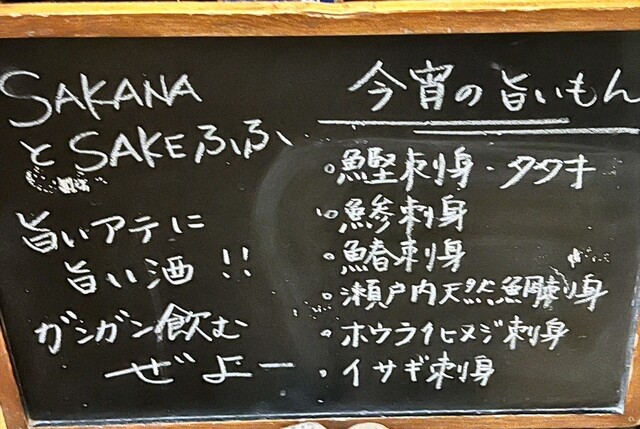 SAKANA
と SAKE ふふ
旨いアテに
旨い酒!!
ガンガン飲む
ぜよー
今宵の旨いもん
・鰹刺身・タタキ
・鰺刺身
・鰆刺身
・瀬戸内天然鯛刺身
・ホウライヒメジ刺身
・イサギ刺身